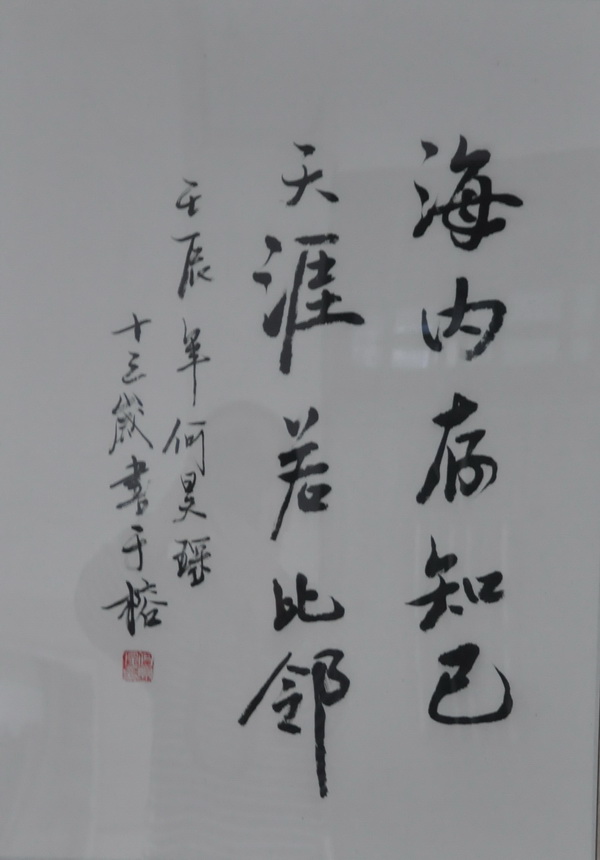 海内存知己
天涯若比邻
壬辰年何昊瑶
十三歲書于榕